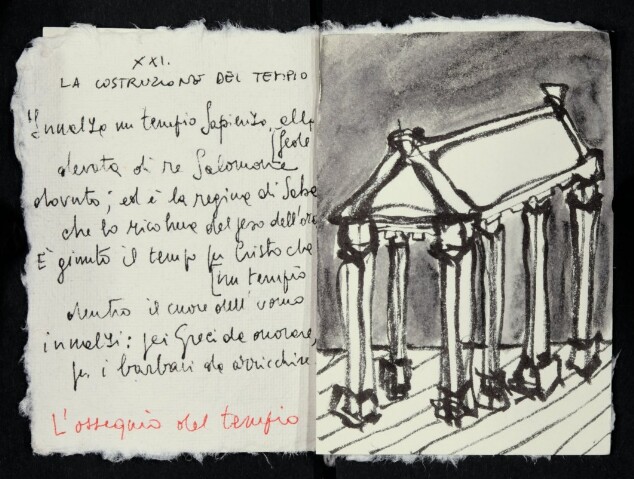 XXI.
LA COSTRUZIONE DEL TEMPIO
Innalza un tempio Sapienza, alla
[fede
devota di re Salomone
dovuto; ed è la regina di Saba
che lo ricolma del peso dell'oro
È giunto il tempo per Cristo che
[un tempio
dentro il cuore dell'uomo
innalzi: pei Greci da onorare,
per i barbari da arricchire
L'ossequio del tempio